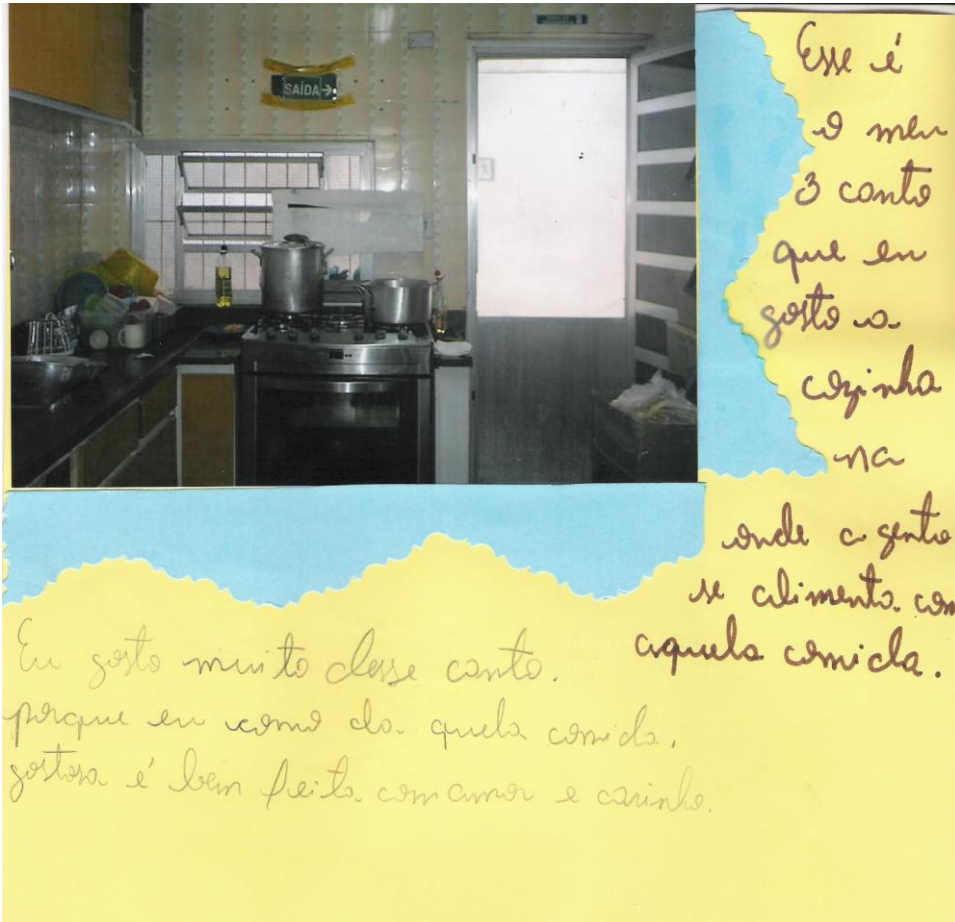 SAÍDA→
Esse é
o meu
3 canto
que eu
gosto a
cozinha
na
onde a gente
se alimenta com
aquela comida.
Eu gosto muito desse canto.
porque eu como da quela comida.
gostosa é bem feita com amor e carinho.